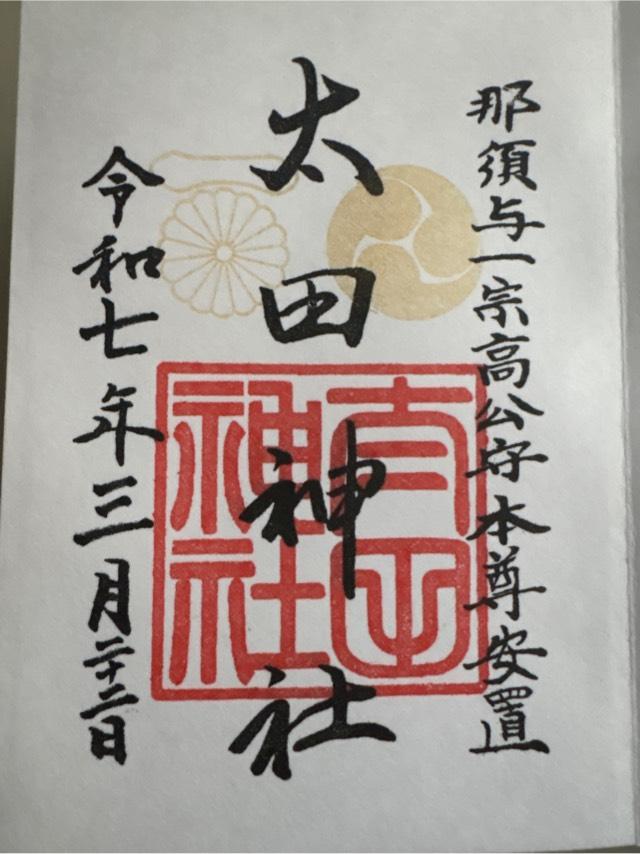 那須与一宗高公守本尊安置
太田神社
令和七年三月二十二日